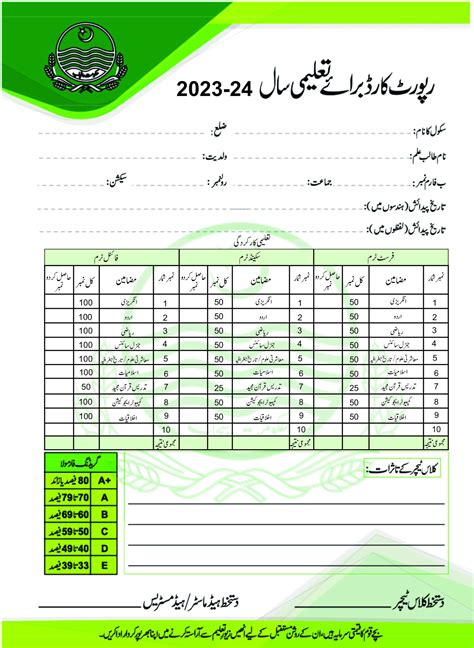 رپورٹ کارڈ برائے تعلیمی سال 24-2023
سکول کا نام: ضلع:
نام طالب علم: ولدیت:
ب فارم نمبر: جماعت: رولنمبر: سیکشن:
تاریخ پیدائش (ہندسوں میں):
تاریخ پیدائش (لفظوں میں):
تعلیمی کارکردگی
فرسٹ ٹرم سیکینڈ ٹرم فائنل ٹرم
نمبر شمار مضامین کل نمبر حاصل کردہ نمبر نمبر شمار مضامین کل نمبر حاصل کردہ نمبر نمبر شمار مضامین کل نمبر حاصل کردہ نمبر
1 انگریزی 50 1 انگریزی 50 1 انگریزی 100
2 اردو 50 2 اردو 50 2 اردو 100
3 ریاضی 50 3 ریاضی 50 3 ریاضی 100
4 جنرل سائنس 50 4 جنرل سائنس 50 4 جنرل سائنس 100
5 معاشرتی علوم / تاریخ جغرافیہ 50 5 معاشرتی علوم / تاریخ جغرافیہ 50 5 معاشرتی علوم / تاریخ جغرافیہ 100
6 اسلامیات 50 6 اسلامیات 50 6 اسلامیات 100
7 تدریس قرآن مجید 25 7 تدریس قرآن مجید 25 7 تدریس قرآن مجید 50
8 کمپیوٹر ایجوکیشن 50 8 کمپیوٹر ایجوکیشن 50 8 کمپیوٹر ایجوکیشن 100
9 اخلاقیات 50 9 اخلاقیات 50 9 اخلاقیات 100
10 10 10
مجموعی نتیجہ مجموعی نتیجہ مجموعی نتیجہ
کلاس ٹیچر کے تاثرات:
گریڈنگ فارمولا
A+ 80 فیصد یا زائد
A 70 تا 79 فیصد
B 60 تا 69 فیصد
C 50 تا 59 فیصد
D 40 تا 49 فیصد
E 33 تا 39 فیصد
دستخط کلاس ٹیچر دستخط ہیڈ ماسٹر/ہیڈ مسٹریس
بچے قوم کا قیمتی سرمایہ ہیں، ان کے روشن مستقبل کے لیے انھیں زیور تعلیم سے آراستہ کرنے میں اپنا بھرپور کردار ادا کریں۔